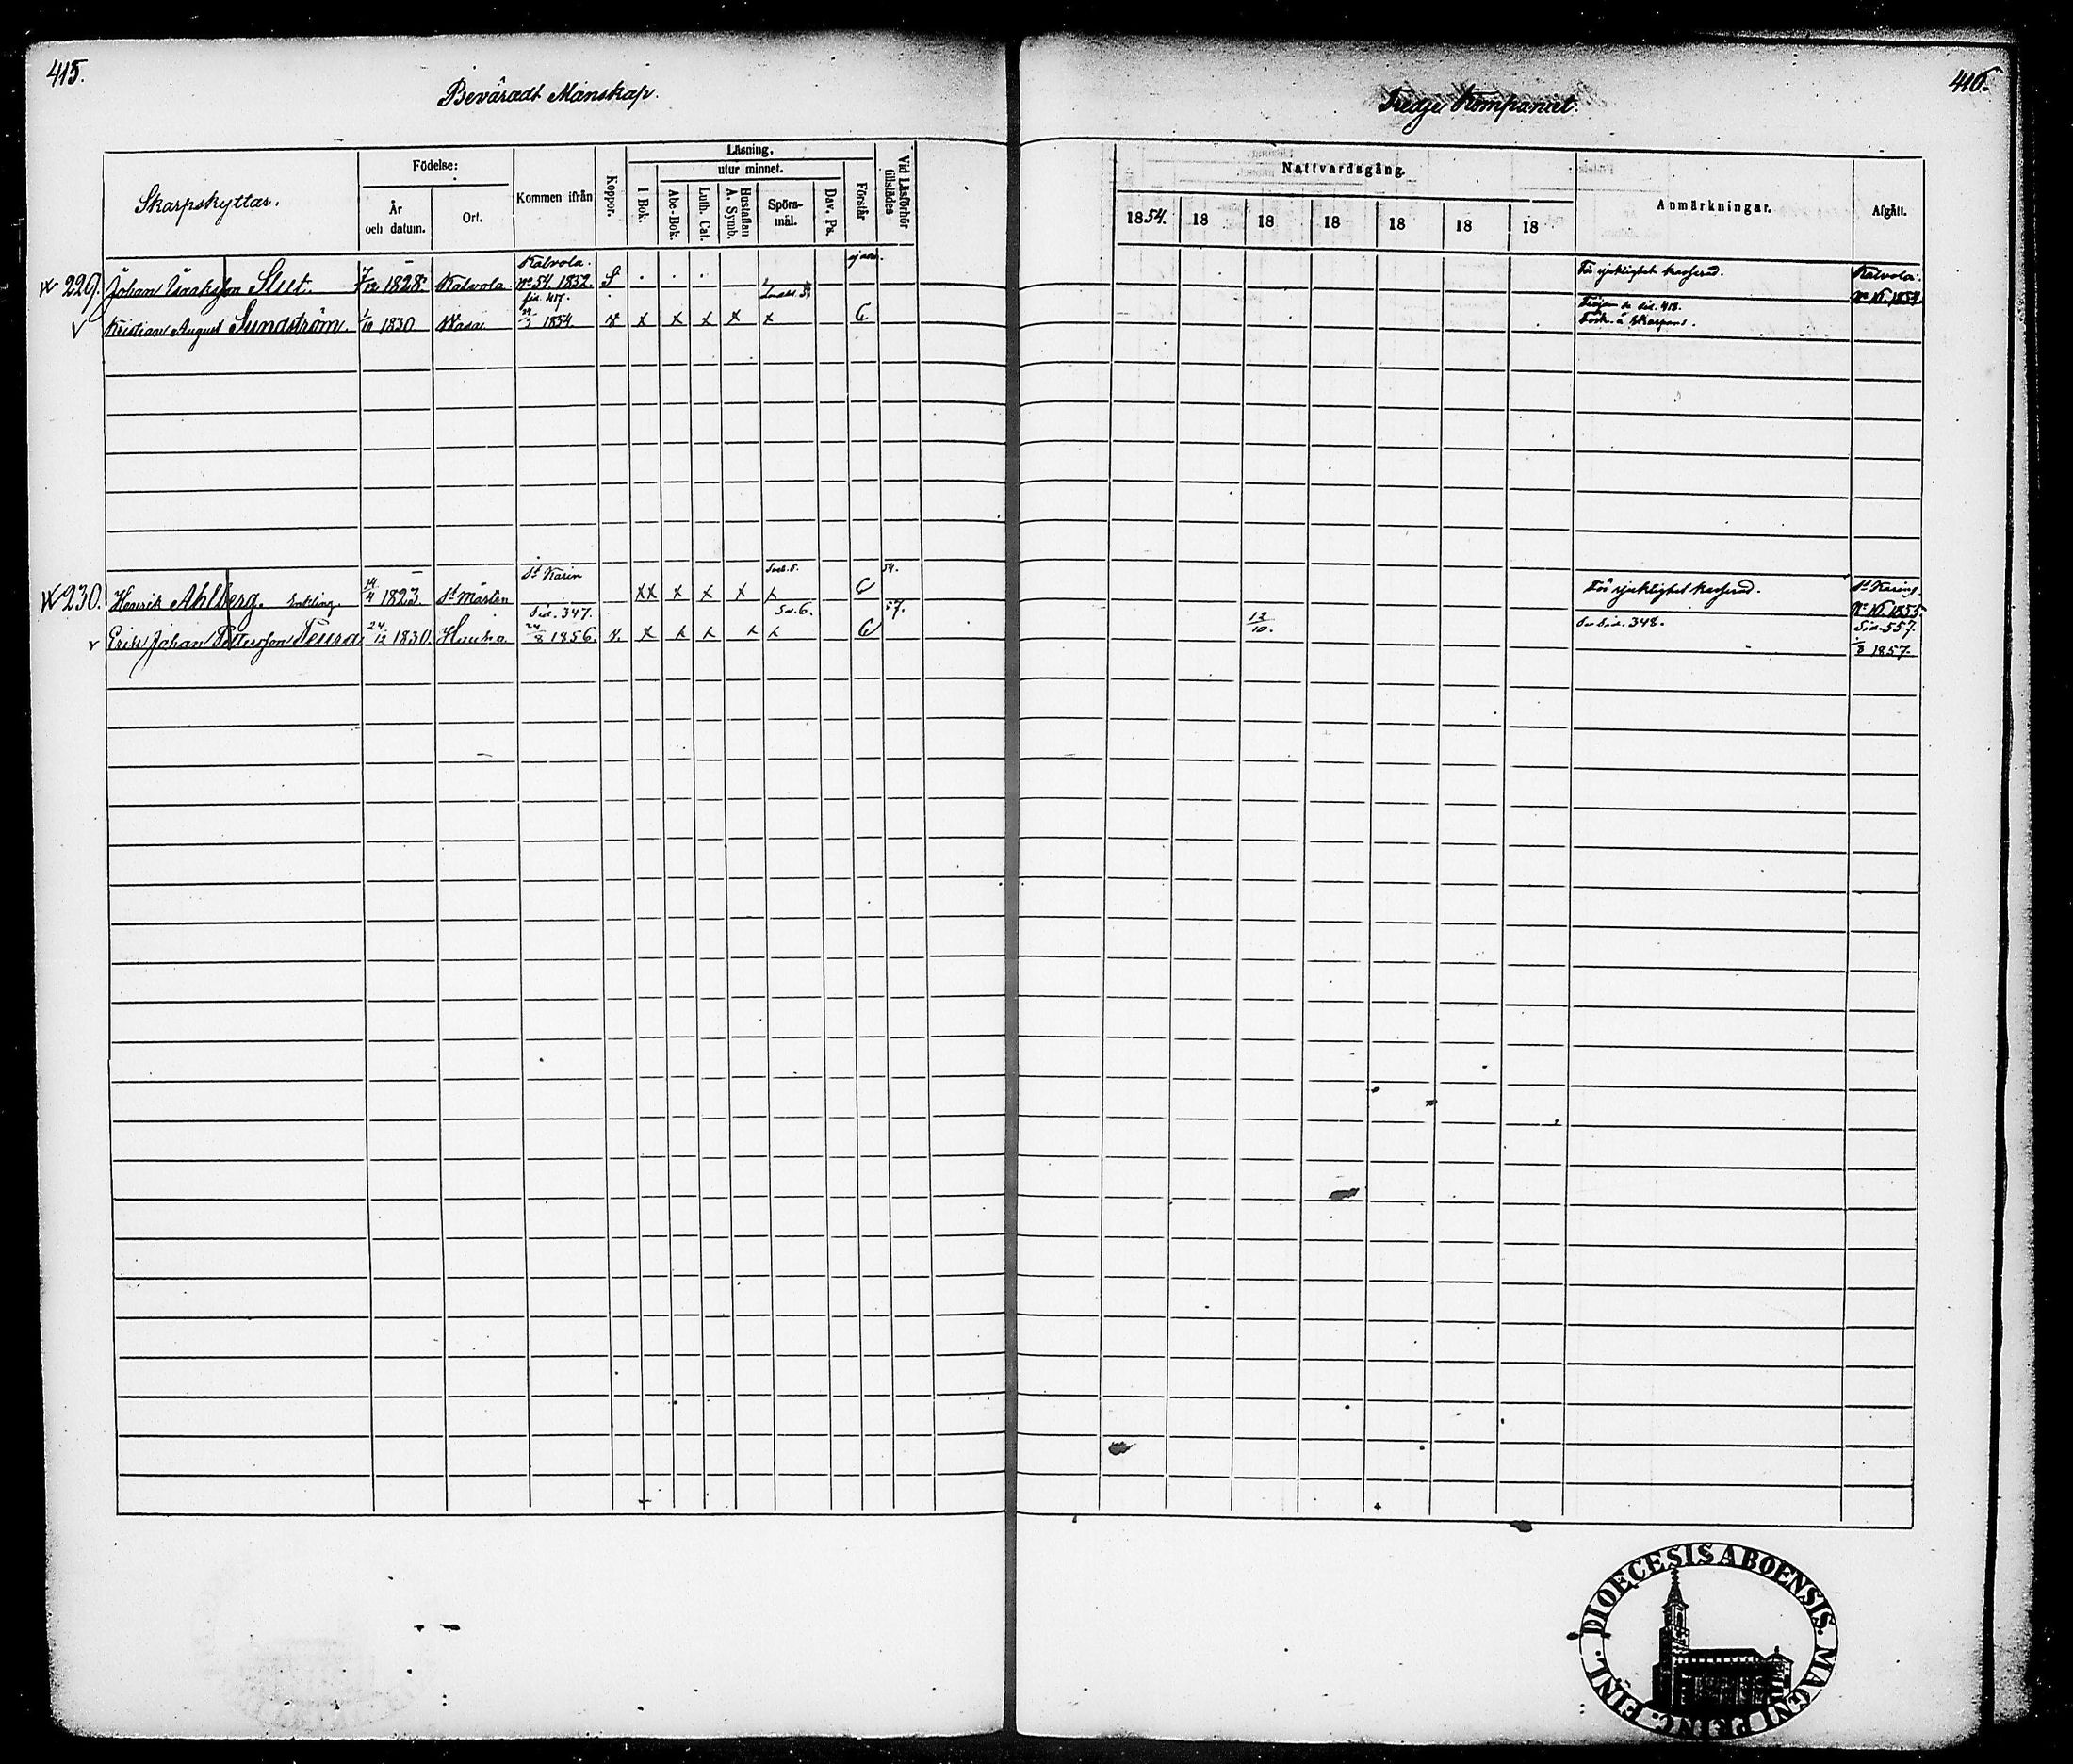 415.
Beväradt Manskap.
Skarpskyttar.
Födelse:
År och datum.
Ort.
Kommen ifrån
Koppor.
Läsning.
utur minnet.
I Bok.
Abc-Bok.
Luth. Cat.
Hustaflan A. Symb.
Spörsmål.
Dav. Ps.
Förstår
Vid Läsförhör tillstädes
№ 229. Johan Isaksson Slut. 7/12 1828. Kalvola Kalvola. No 54. 1852. S
v Kristian August Sundström. 1/10 1830 Wasa Sid. 417. 1854. v x x x x x C.
№ 230. Henrik Ahlberg. Enkling. 14/4 1823. St Mårten St Karin xx x x x x C 54.
v Erik Johan Pettersson Teura 24/12 1830. Sid. 347. 24/8 1856. v. x x x x x Sid. 6. C 57.
416.
Tredje Kompaniet.
Nattvardsgång.
1854. 18 18 18 18 18 18
Anmärkningar.
Afgått.
För sjuklighet kasserad. Kalvola. No 16. 1854.
sid. 418.
För sjuklighet kasserad. St Karins. No 16. 1855.
12/10. Se Sid. 348. Sid. 557. 1857.
DIOECESIS ABOENSIS. MAGNI PRINC. FINL.